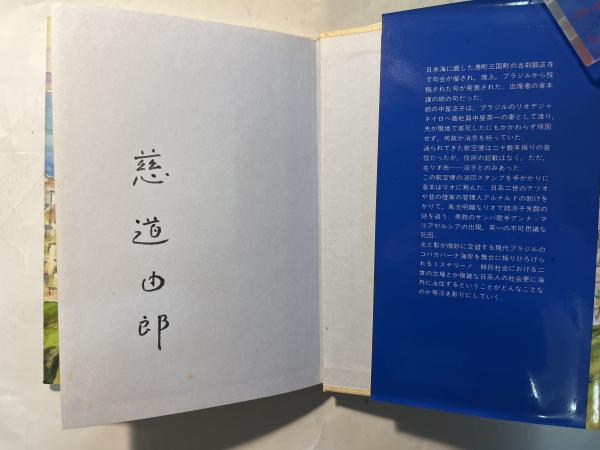 慈
道
由
郎
日本海に面した港町三国町の古刹臨正寺
で句会が催され、席上、ブラジルから投
稿された句が発表された。出席者の倉本
譲の姉の句だった。
姉の中屋涼子は、ブラジルのリオデジャ
ネイロへ商社員中屋英一の妻として渡り、
夫が現地で客死したにもかかわらず帰国
せず、何故か消息を絶っていた。
送られてきた航空便は二十数年振りの音
信だったが、住所の記載はなく、ただ、
在リオ市……涼子とのみあった。
この航空便の消印スタンプを手がかりに
倉本はリオに飛んだ。日系二世のテツオ
や昔の借家の管理人アルナルドの助けを
かりて、風光明媚なリオで姉涼子失踪の
謎を追う。美貌のサンバ歌手アンナ・マ
リアやルシアの出現、英一の不可思議な
死因。
光と影が微妙に交錯する現代ブラジルの
コパカバーナ海岸を舞台に繰りひろげら
れるミステリーノ 移民社会における二
世の立場とか複雑な日系人の社会更に海
外に永住するということがどんなことな
のか等浮き彫りにしていく。